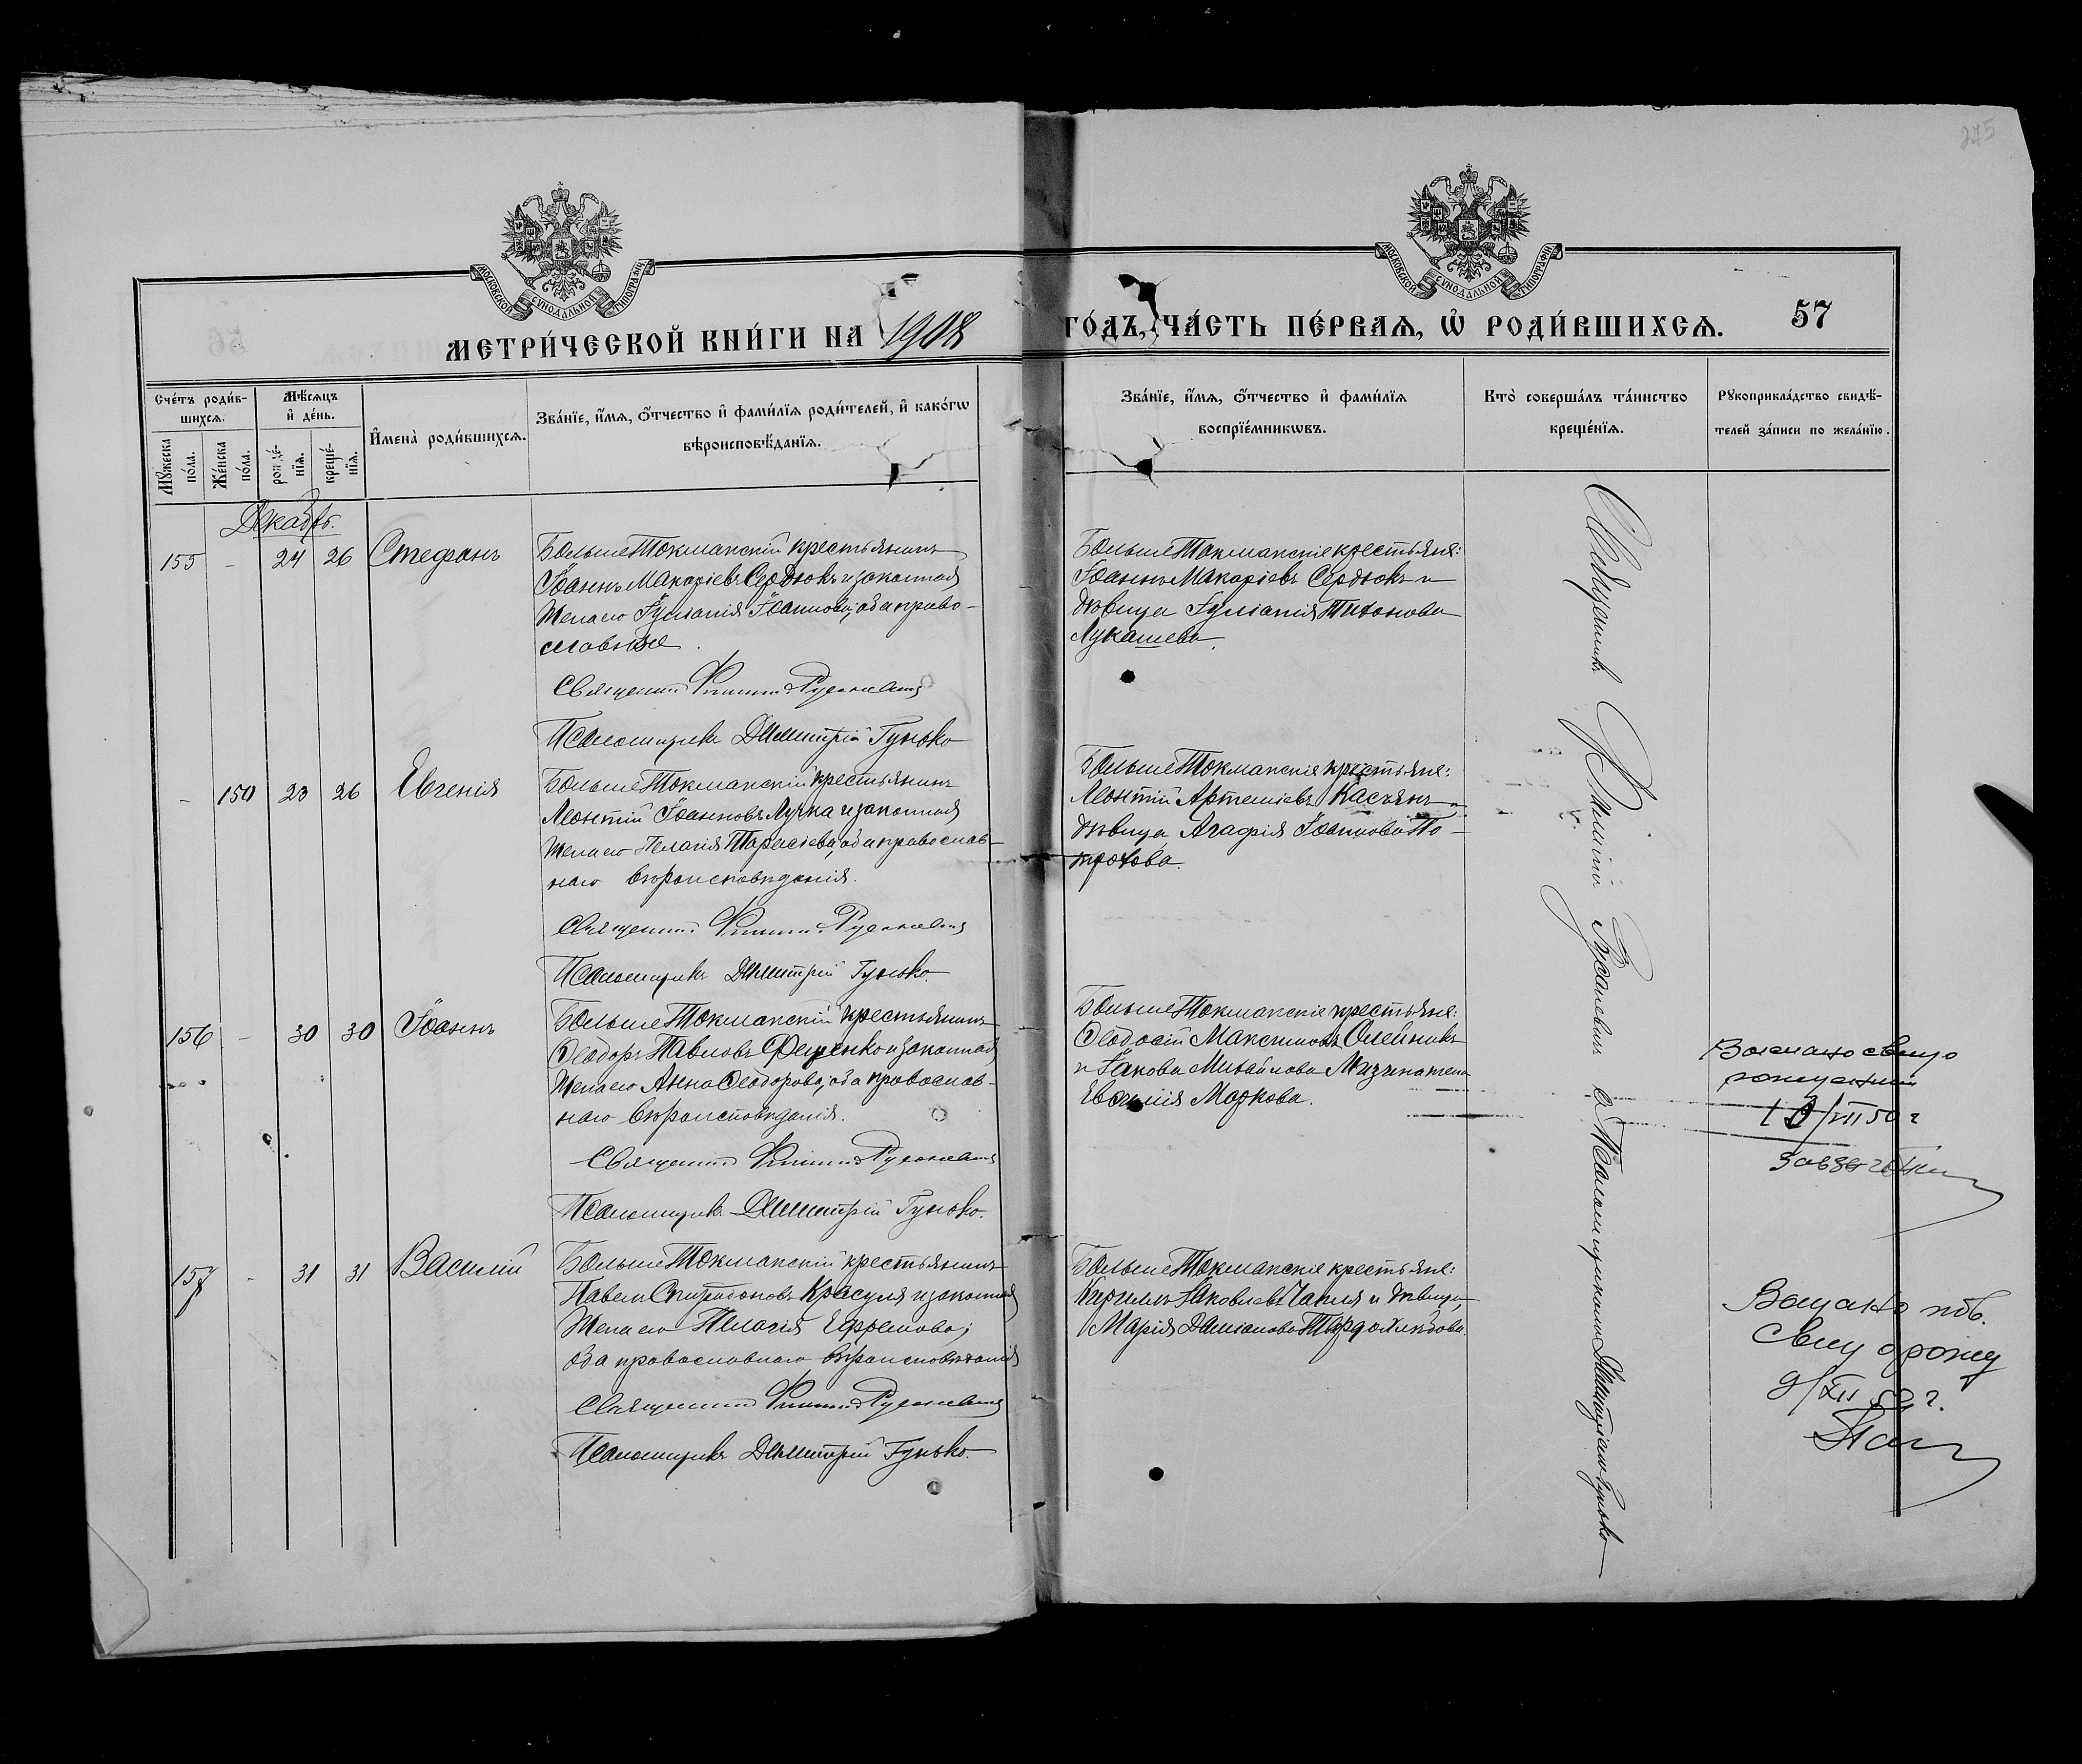 275
МОСКОВСКОЙ СѴНОДАЛЬНОЙ ТИПОГРАФІИ
МОСКОВСКОЙ СѴНОДАЛЬНОЙ ТИПОГРАФІИ
МЕТРИ́ЧЕСКОЙ КНИ́ГИ НА 1908 ГО́ДЪ, ЧА́СТЬ ПЕ́РВАѦ, Ѡ҆ РОДИ́ВШИХСѦ.
57
Сче́тъ роди́в-
шихсѧ.
Мꙋ́жеска по́ла.
Же́нска по́ла.
Мѣ́сѧцъ
и҆ де́нь.
рожде́-
нїѧ.
креще́-
нїѧ.
И҆мена̀ роди́вшихсѧ.
Зва́нїе, и҆́мѧ, ѻ҆́тчество и҆ фами́лїѧ роди́телей, и҆ како́гѡ
вѣроисповѣ́данїѧ.
Зва́нїе, и҆́мѧ, ѻ҆́тчество и҆ фами́лїѧ
воспрїе́мникѡвъ.
Кто̀ соверша́лъ та́инство
креще́нїѧ.
Рꙋкоприкла́дство свидѣ́-
телей за́писи по жела́нїю.
Декабрь.
155 - 24 26 Стефанъ
БольшеТокмакскій крестьянинъ
Іоаннъ Макаріевъ Сердюкъ и законная
жена его Іуліанія Іоаннова; оба право-
славные.
Священникъ Филиппъ
Псаломщикъ Димитрій Гунько
БольшеТокмакскіе крестьяне:
Іоаннъ Макаріевъ Сердюкъ и
дѣвица Іуліанія Тихонова
Лукашева.
- 150 23 26 Евгенія
БольшеТокмакскій крестьянинъ
Леонтій Іоанновъ Лучка и законная
жена его Пелагія Тарасіева, оба православ-
наго вѣроисповѣданія.
Священникъ Филиппъ
Псаломщикъ Димитрій Гунько.
БольшеТокмакскіе крестьяне:
Леонтій Артеміевъ Касьянъ и
дѣвица Агафія Іоаннова По-
трохова.
156 - 30 30 Іоаннъ
БольшеТокмакскій крестьянинъ
Ѳеодоръ Павловъ Фещенко и законная
жена его Анна Ѳеодорова; оба православ-
наго вѣроисповѣданія.
Священникъ Филиппъ
Псаломщикъ Димитрій Гунько.
БольшеТокмакскіе крестьяне:
Ѳеодосій Максимовъ Олейникъ
и Іакова Михайлова Мизина жена
Евфимія Маркова.
157 - 31 31 Василій
БольшеТокмакскій крестьянинъ
Павелъ Спиридоновъ Красуля и законная
жена его Пелагія Ефремова;
оба православнаго вѣроисповѣданія
Священникъ Филиппъ
Псаломщикъ Димитрій Гунько.
БольшеТокмакскіе крестьяне:
Кириллъ Іаковлевъ Чапля и дѣвица
Марія Даміанова Твердохлѣбова.
Священникъ Филиппъ съ Псаломщикомъ Димитріемъ Гунько
50 г
Выдано пов.
Свид о рожд
9/XII 52 г.